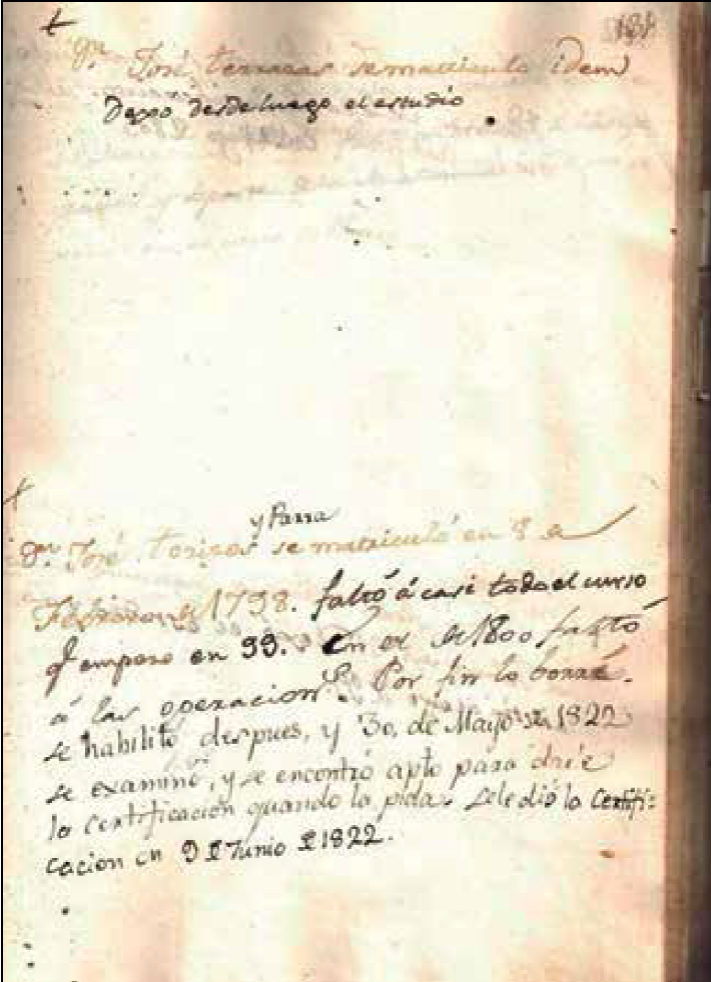 José terrazas se matriculo idem
Dexo desde luego el estudio
y Parra
Dn. José terizas se matriculó en 8 de
Febrero de 1798. faltó á casi todo el curso
q. empezo en 99. En el de 1800 faltó
á las operacions. Por fin lo borré.
se habilitó despues, y 30, de Mayo de 1822
se examinó, y se encontró apto para
la certificacion quando la pida. Se le dió la Certifi-
cacion en 9 de Junio de 1822.